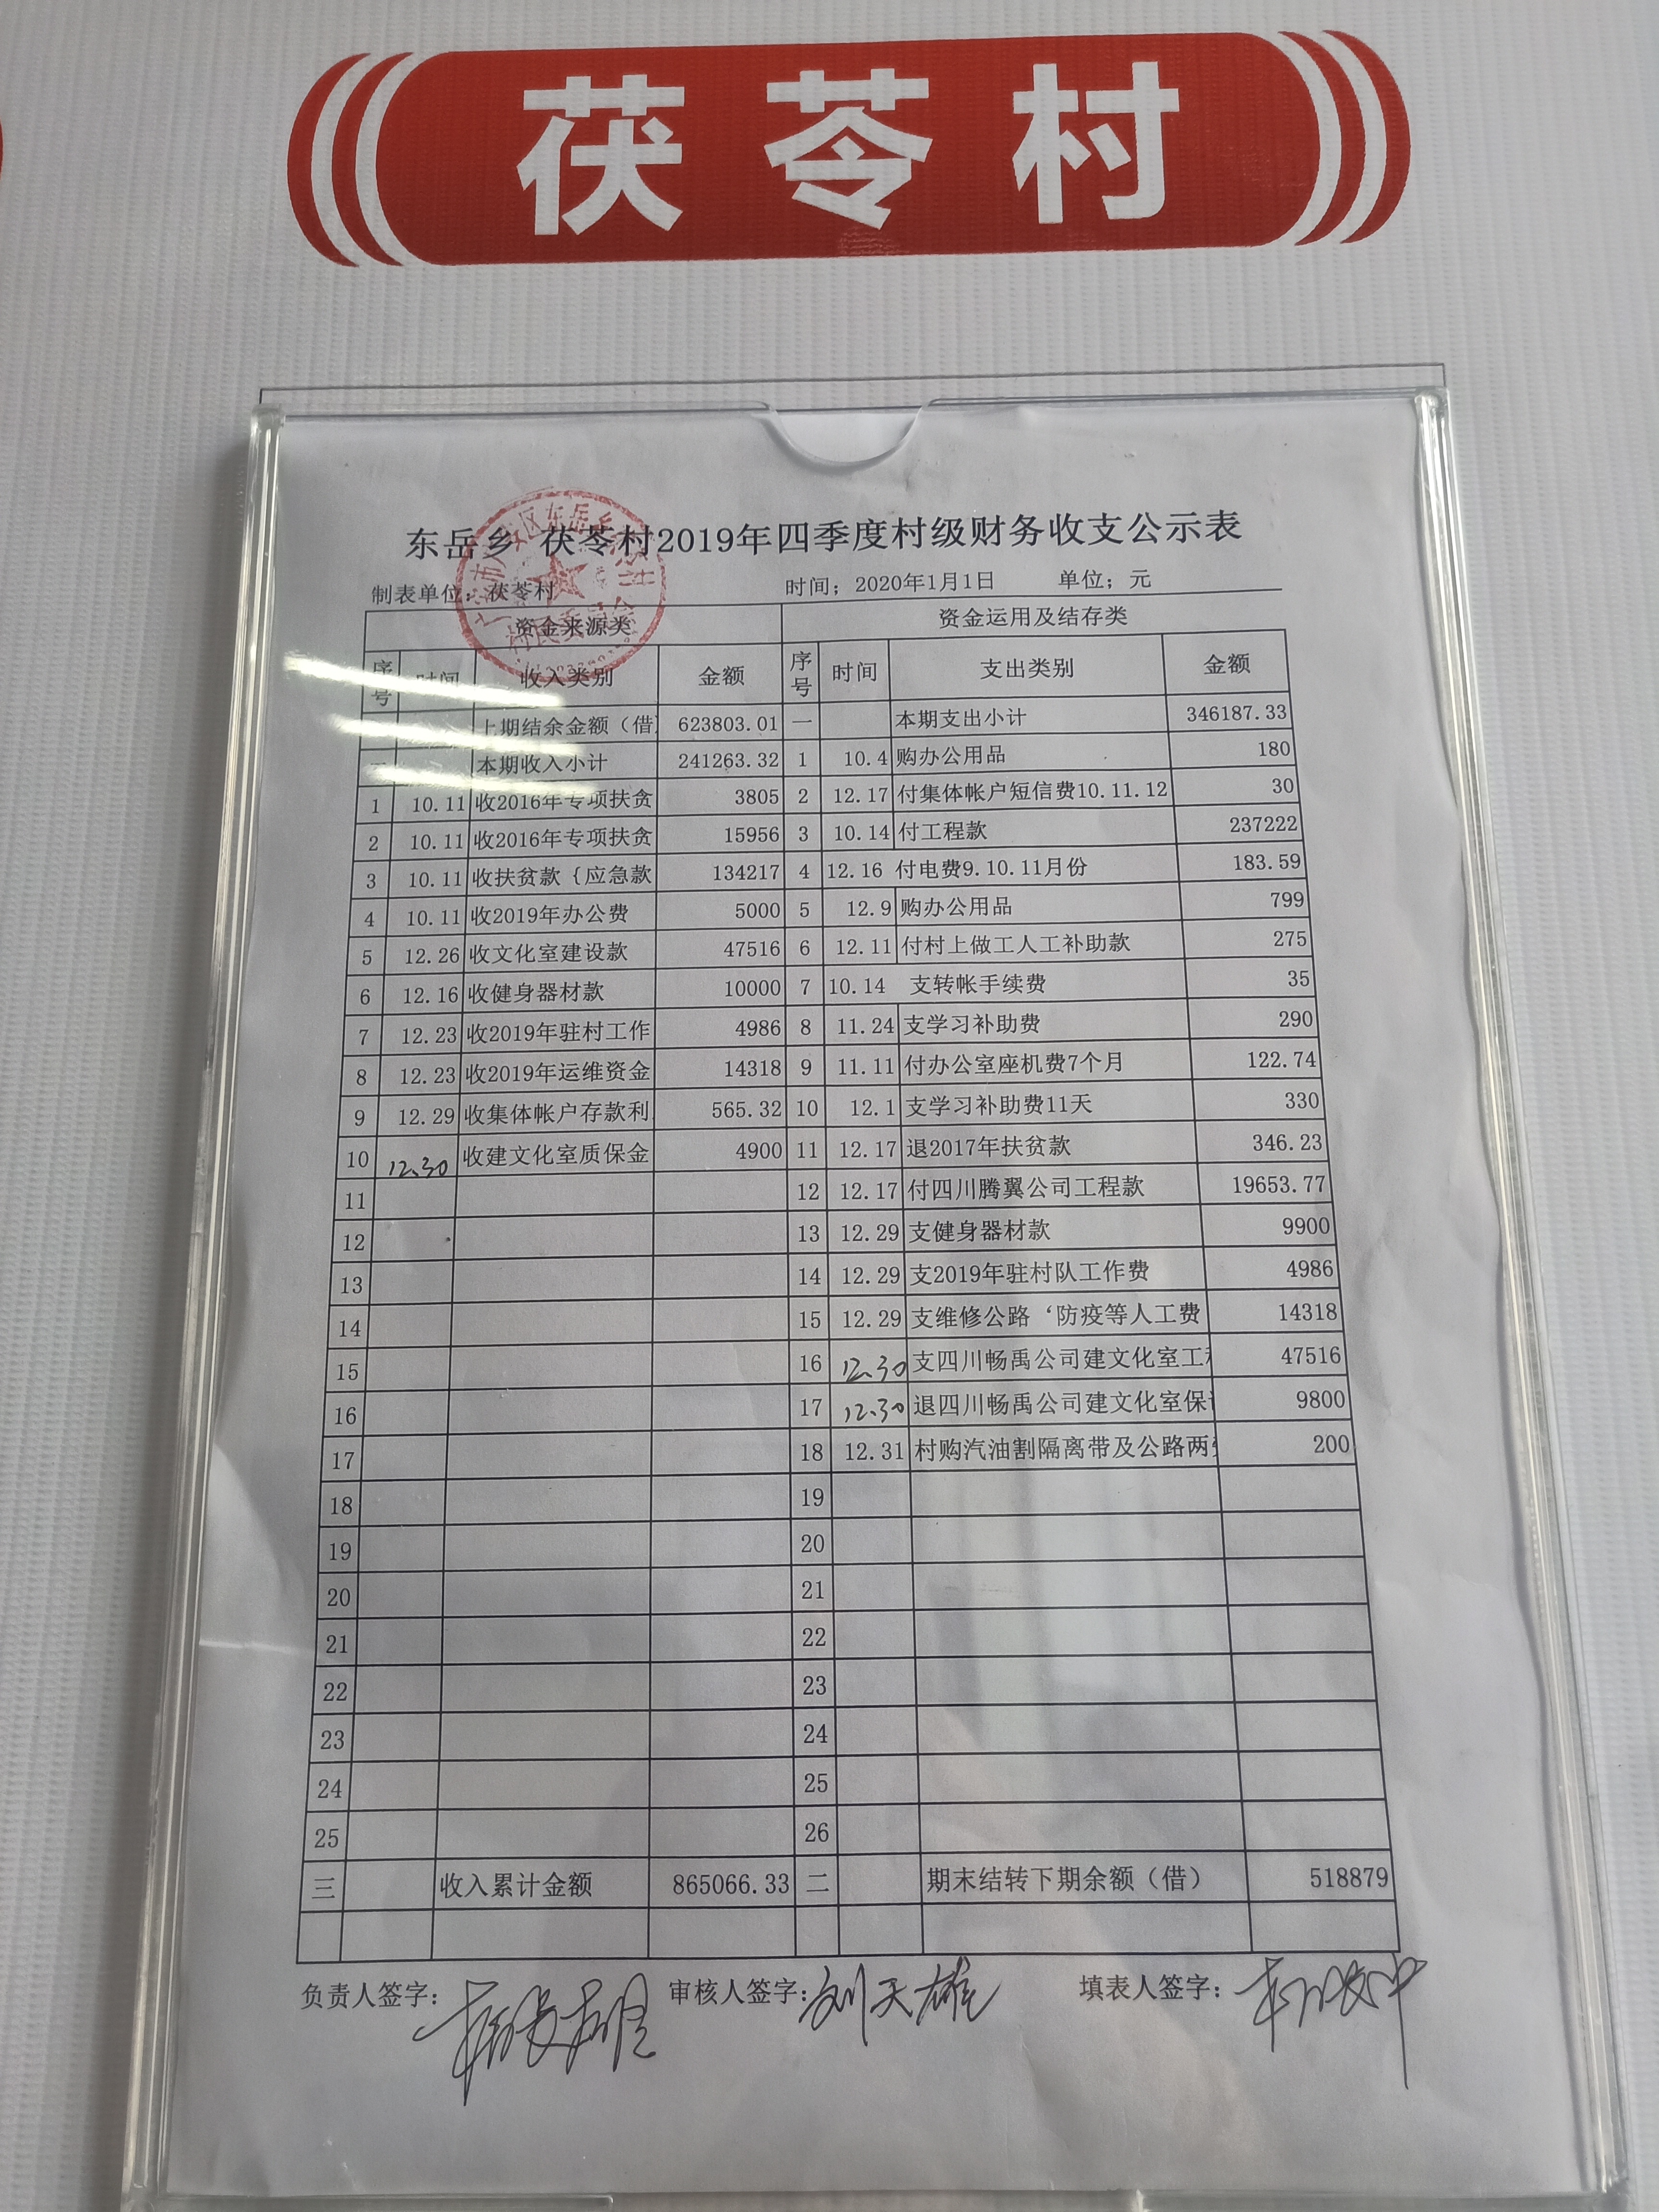 茯苓村
东岳乡 茯苓村2019年四季度村级财务收支公示表
制表单位：茯苓村 时间；2020年1月1日 单位；元
资金来源类 资金运用及结存类
序号 时间 收入类别 金额 序号 时间 支出类别 金额
上期结余金额（借） 623803.01 一 本期支出小计 346187.33
二 本期收入小计 241263.32 1 10.4 购办公用品 180
1 10.11 收2016年专项扶贫 3805 2 12.17 付集体帐户短信费10.11.12 30
2 10.11 收2016年专项扶贫 15956 3 10.14 付工程款 237222
3 10.11 收扶贫款｛应急款 134217 4 12.16 付电费9.10.11月份 183.59
4 10.11 收2019年办公费 5000 5 12.9 购办公用品 799
5 12.26 收文化室建设款 47516 6 12.11 付村上做工人工补助款 275
6 12.16 收健身器材款 10000 7 10.14 支转帐手续费 35
7 12.23 收2019年驻村工作 4986 8 11.24 支学习补助费 290
8 12.23 收2019年运维资金 14318 9 11.11 付办公室座机费7个月 122.74
9 12.29 收集体帐户存款利 565.32 10 12.1 支学习补助费11天 330
10 12.30 收建文化室质保金 4900 11 12.17 退2017年扶贫款 346.23
11 12 12.17 付四川腾翼公司工程款 19653.77
12 13 12.29 支健身器材款 9900
13 14 12.29 支2019年驻村队工作费 4986
14 15 12.29 支维修公路‘防疫等人工费 14318
15 16 12.30 支四川畅禹公司建文化室工 47516
16 17 12.30 退四川畅禹公司建文化室保 9800
17 18 12.31 村购汽油割隔离带及公路两 200
18 19
19 20
20 21
21 22
22 23
23 24
24 25
25 26
三 收入累计金额 865066.33 二 期末结转下期余额（借） 518879
负责人签字： 审核人签字：刘天雄 填表人签字：